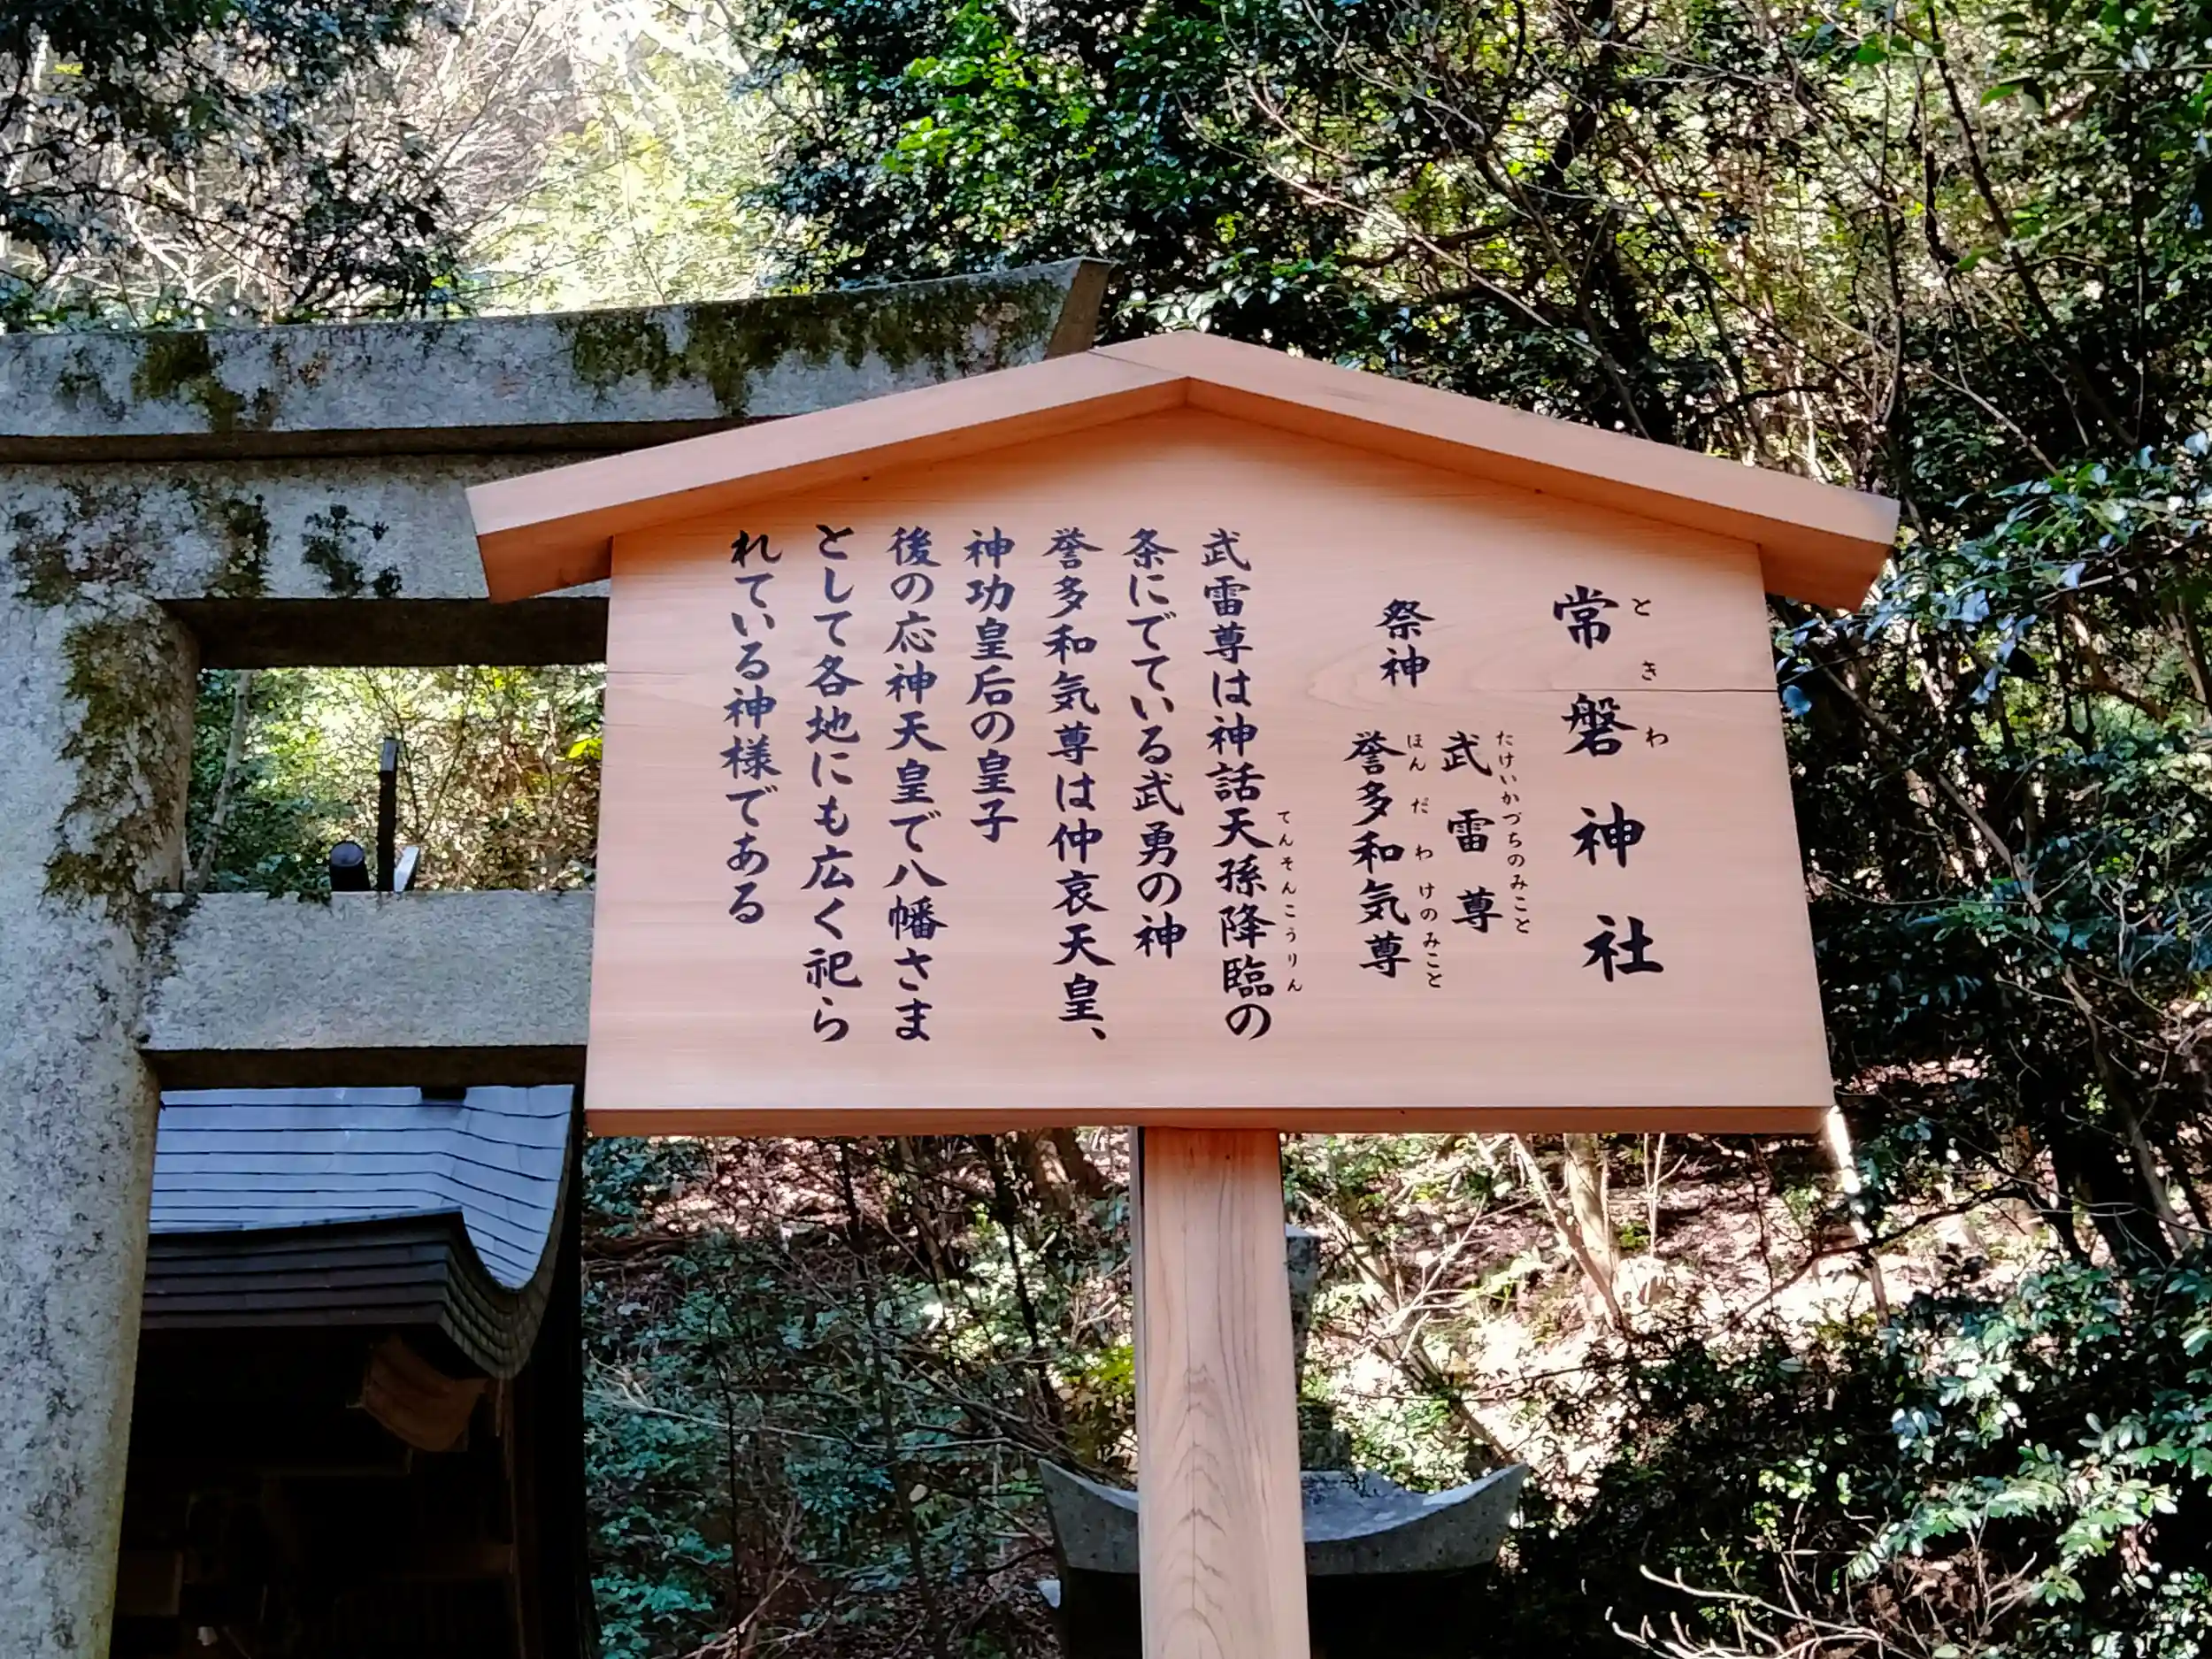 常磐神社
ときわ
祭神
武雷尊
たけいかづちのみこと
誉多和気尊
ほんだわけのみこと
武雷尊は神話天孫降臨の
てんそんこうりん
条にでている武勇の神
誉多和気尊は仲哀天皇、
神功皇后の皇子
後の応神天皇で八幡さま
として各地にも広く祀ら
れている神様である